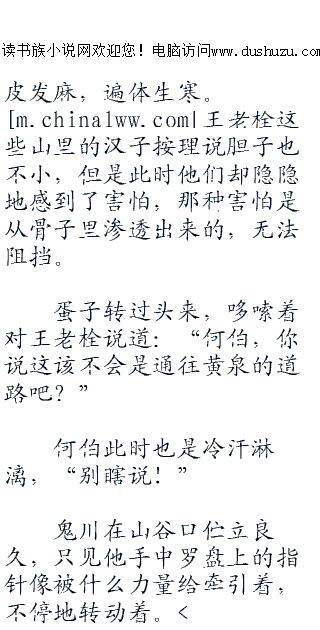 读书族小说网欢迎您！电脑访问www.dushuzu.com
皮发麻，遍体生寒。
[m.chinalww.com|王老栓这
些山里的汉子按理说胆子也
不小，但是此时他们却隐隐
地感到了害怕，那种害怕是
从骨子里渗透出来的，无法
阻挡。
蛋子转过头来，哆嗦着
对王老栓说道：“何伯，你
说这该不会是通往黄泉的道
路吧？”
何伯此时也是冷汗淋
漓，“别瞎说！”
鬼川在山谷口伫立良
久，只见他手中罗盘上的指
针像被什么力量给牵引着，
不停地转动着。<